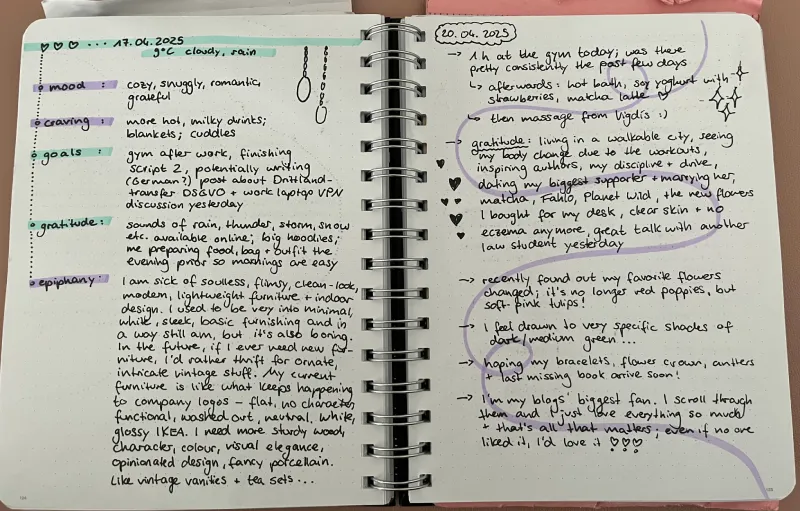 ♡ ♡ ♡ ... 17.04.2025
9°C cloudy, rain
mood : cozy, snuggly, romantic,
grateful
craving : more hot, milky drinks;
blankets; cuddles
goals : gym after work, finishing
script 2, potentially writing
(German?) post about Drittland-
transfer DSGVO + work laptop VPN
discussion yesterday
gratitude : sounds of rain, thunder, storm, snow
etc. available online; big hoodies;
me preparing food, bag + outfit the
evening prior so mornings are easy
epiphany : I am sick of soulless, flimsy, clean-look,
modern, lightweight furniture + indoor
design. I used to be very into minimal,
white, sleek, basic furnishing and in
a way still am, but it's also boring.
In the future, if I ever need new fur-
niture, I'd rather thrift for ornate,
intricate vintage stuff. My current
furniture is like what keeps happening
to company logos – flat, no character,
functional, washed out, neutral, white,
glossy IKEA. I need more sturdy wood,
character, colour, visual elegance,
opinionated design, fancy porcellain.
Like vintage vanities + tea sets...
20.04.2025
→ 1h at the gym today; was there
pretty consistently the past few days
↳ afterwards: hot bath, soy yoghurt with
strawberries, matcha latte ♡
↳ then massage from Vigdis :)
→ gratitude: living in a walkable city, seeing
my body change due to the workouts,
inspiring authors, my discipline + drive,
dating my biggest supporter + marrying her,
matcha, Fahlo, Planet Wild, the new flowers
I bought for my desk, clear skin + no
eczema anymore, great talk with another
law student yesterday
→ recently found out my favorite flowers
changed; it's no longer red poppies, but
soft pink tulips!
→ I feel drawn to very specific shades of
dark/medium green...
→ hoping my bracelets, flower crown, antlers
+ last missing book arrive soon!
→ I'm my blogs' biggest fan. I scroll through
them and I just love everything so much
+ that's all that matters; even if no one
liked it, I'd love it ♡♡♡